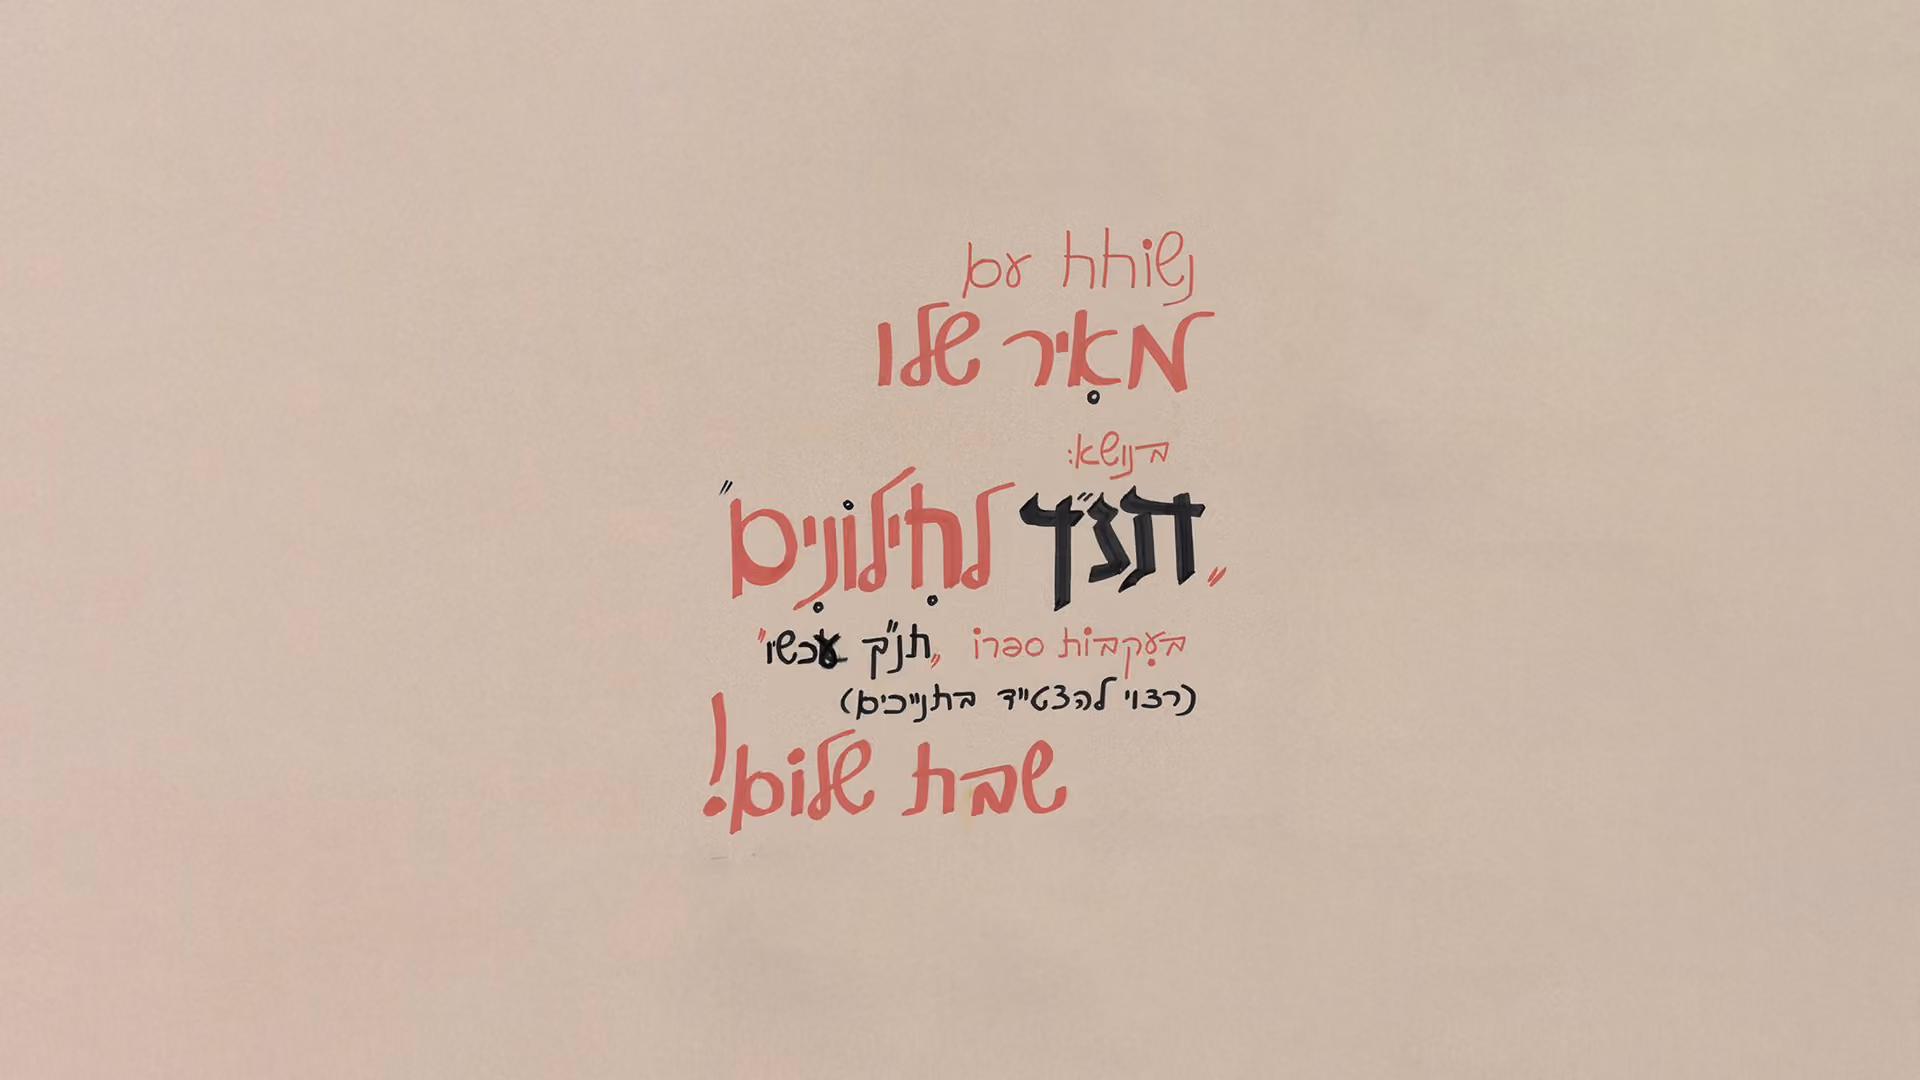 נשוחח עם
מאִיר שלו
בנושא:
„תנ״ך לחִילוֹנִים״
בעִקבות ספרו „תנ״ך עכשיו״
(רצוי להצטייד בתנ״כים)
שבת שלום!